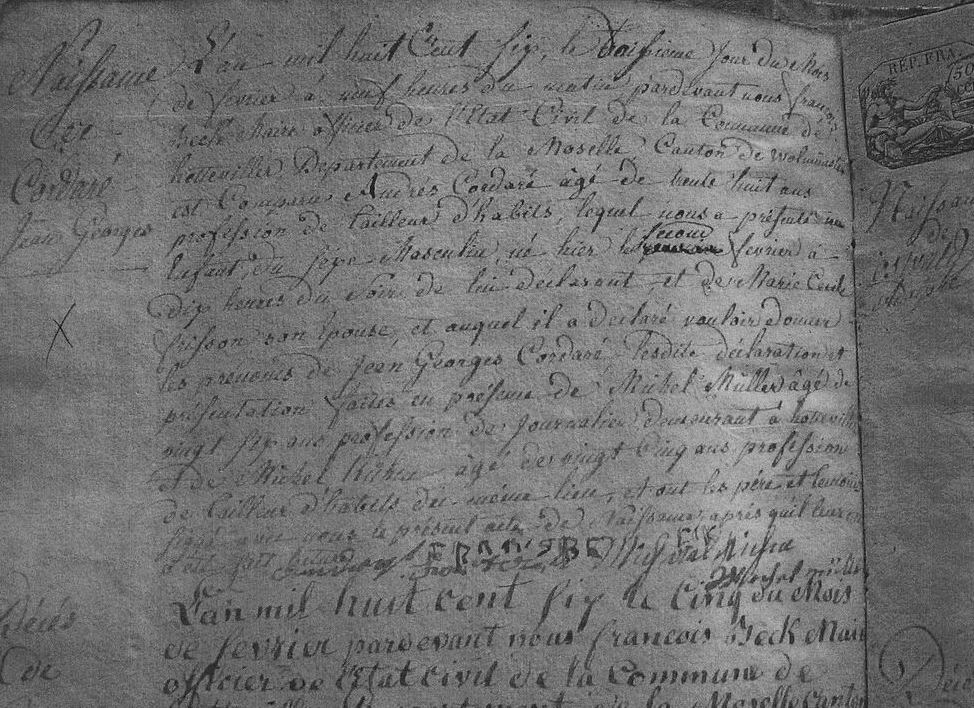 Naissance
de
Cordaré
Jean Georges
L'an mil huit Cent six, le troisieme Jour du Mois
de fevrier à neuf heures du matin pardevant nous françois
Jeck Maire officier de l'Etat Civil de la Commune de
hotteviller Departement de la Moselle Canton de
est Comparu Andres Cordaré âgé de trente huit ans
profession de tailleur d'habits, lequel nous a présenté un
Enfant, du sexe Masculin, né hier le second fevrier à
Dix heures du Soir de lui déclarant et de Marie
frisson son Epouse, et auquel il a declaré vouloir donner
les prenoms de Jean Georges Cordaré lesdite déclaration et
présentation faites en présence de Michel Muller âgé de
vingt six ans profession de Journalier demeurant à
et de Michel âgé de vingt Cinq ans profession
de tailleur d'habits du même lieu, et ont les père et temoins
signé avec nous le présent acte de Naissance après qu'il leur en
été fait
Michel müller
L'an mil huit cent six le Cinq du Mois
de fevrier pardevant nous francois Jeck Maire
officier de l'Etat civil de la Commune de
departement de la Moselle Canton
Décés
de
REP. FRA
50
Naissance
de